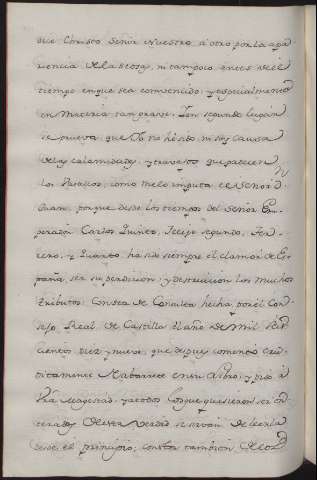 dice Christo Señor Nuestro, á otro por la apa
riencia de la cosa, ni tampoco antes del
tiempo en que sea convencido, y especialmente
en materia tan grave. En segundo lugar
se prueva que Yo no hé sido, ni soy causa
de las calamidades, y travajos que padecen
los Vasallos, como me lo imputa el Señor Dn
Juan, porque desde los tiempos del Señor Em-
perador Carlos Quinto, Felipe segundo, Ter-
cero, y Quarto, ha sido siempre el clamor de Es-
paña, ser su perdicion, y destruicion los muchos
tributos: Consta de Consulta hecha por el Con-
sejo Real de Castilla el año de mil seis
cientos diez y nueve, que despues comentó eru-
ditamente Nabarrete en un Libro, y pido á
Vra Magestad, y a todos los que quisieren ser en
terados de esta verdad se sirvan de leerla
desde el principio; consta tambien de